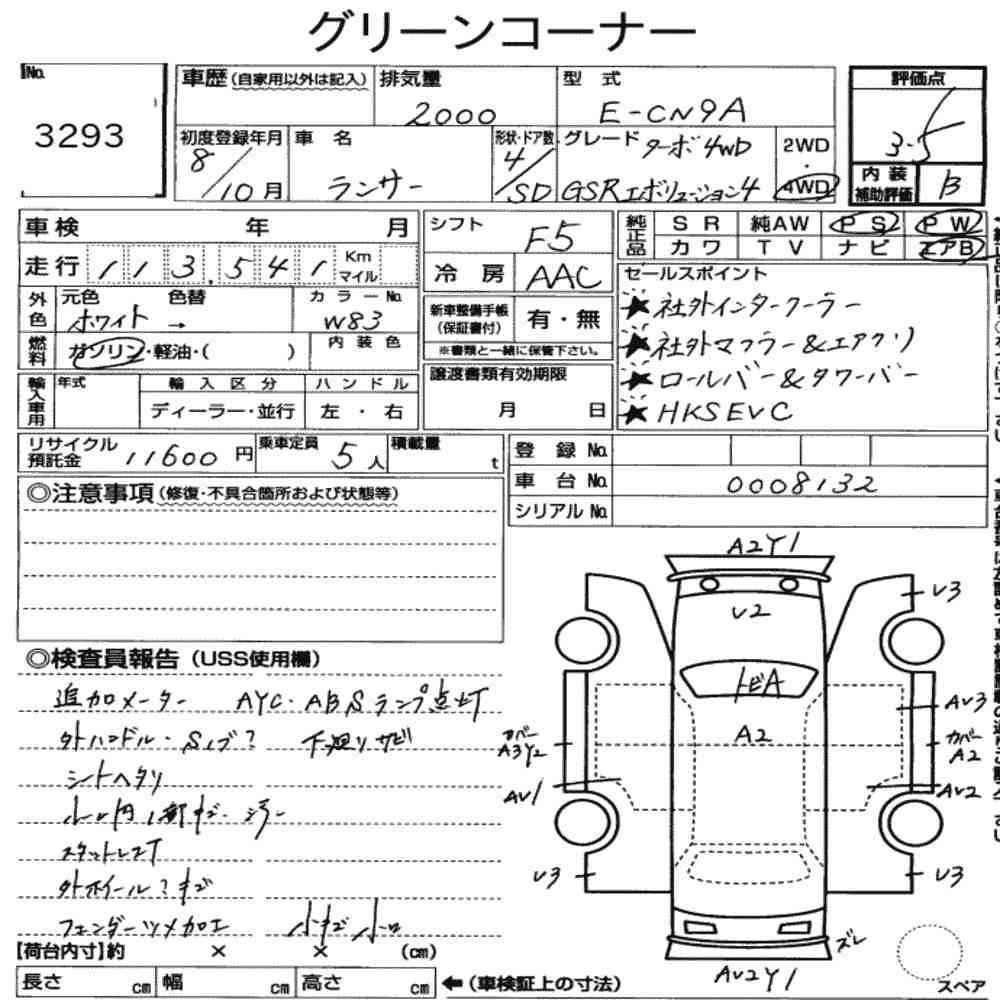 グリーンコーナー
No. 3293
車歴(自家用以外は記入)
排気量 2000
型式 E-CN9A
評価点 3.5
初度登録年月 8/10月
車名 ランサー
形状・ドア数 4/SD
グレード ターボ4WD GSRエボリューション4
2WD・4WD
内装補助評価 B
車検 年 月
走行 113,541 Km マイル
外色 元色 ホワイト → 色替
カラーNo. W83
燃料 ガソリン・軽油・( )
内装色
輸入車用 年式 輸入区分 ディーラー・並行 ハンドル 左・右
シフト F5
冷房 AAC
新車整備手帳(保証書付) 有・無
※書類と一緒に保管下さい。
譲渡書類有効期限 月 日
純正品 SR 純AW PS PW
カワ TV ナビ エアB
セールスポイント
★社外インタークーラー
★社外マフラー&エアクリ
★ロールバー&タワーバー
★HKS EVC
リサイクル預託金 11600円
乗車定員 5人
積載量 t
登録No.
車台No. 0008132
シリアルNo.
◎注意事項(修復・不具合箇所および状態等)
◎検査員報告(USS使用欄)
追加メーター AYC・ABSランプ点灯
外ハンドル・Sノブ? 下廻りサビ
シートヘタリ
外ホイール?キズ
フェンダーツメカロエ 小キズ小凹
【荷台内寸】約 × × (cm)
長さ cm 幅 cm 高さ cm ←(車検証上の寸法)
A2Y1
V2
V3
V3
トビA
A2
カバー A3Y2
AV1
AV3
カバー A2
AV2
V3
V3
ズレ
AV2Y1
スペア